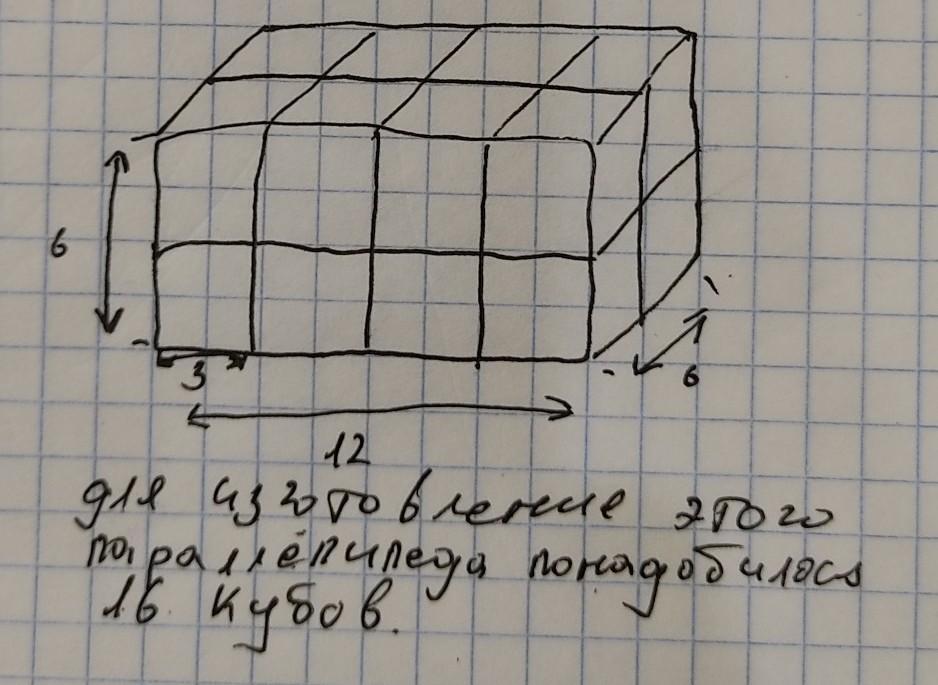 6
3
6
12
для изготовление этого
параллепипеда понадобилось
16 кубов.